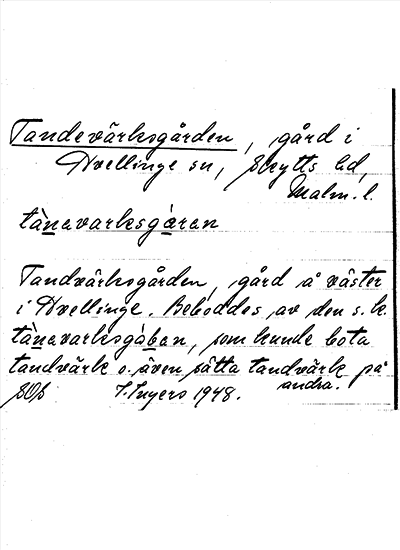 Tandevärksgården, gård i
Hvellinge sn, Skytts hd,
Malm. l.
tànavarksgáran
Tandvärksgården, gård å väster
i Hvellinge. Beboddes av den s. k.
tànavarksgában, som kunde bota
tandvärk o. även sätta tandvärk på
andra.
J. Ingers 1948.